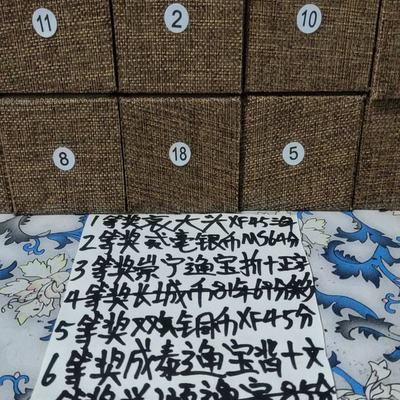 11 2 10
8 18 5
1等奖袁大头XF45分
2等奖贰毫银币MS64分
3等奖崇宁通宝折十正字
4等奖长城币81年67分
5等奖双旗铜币XF45分
6等奖咸泰通宝背十文